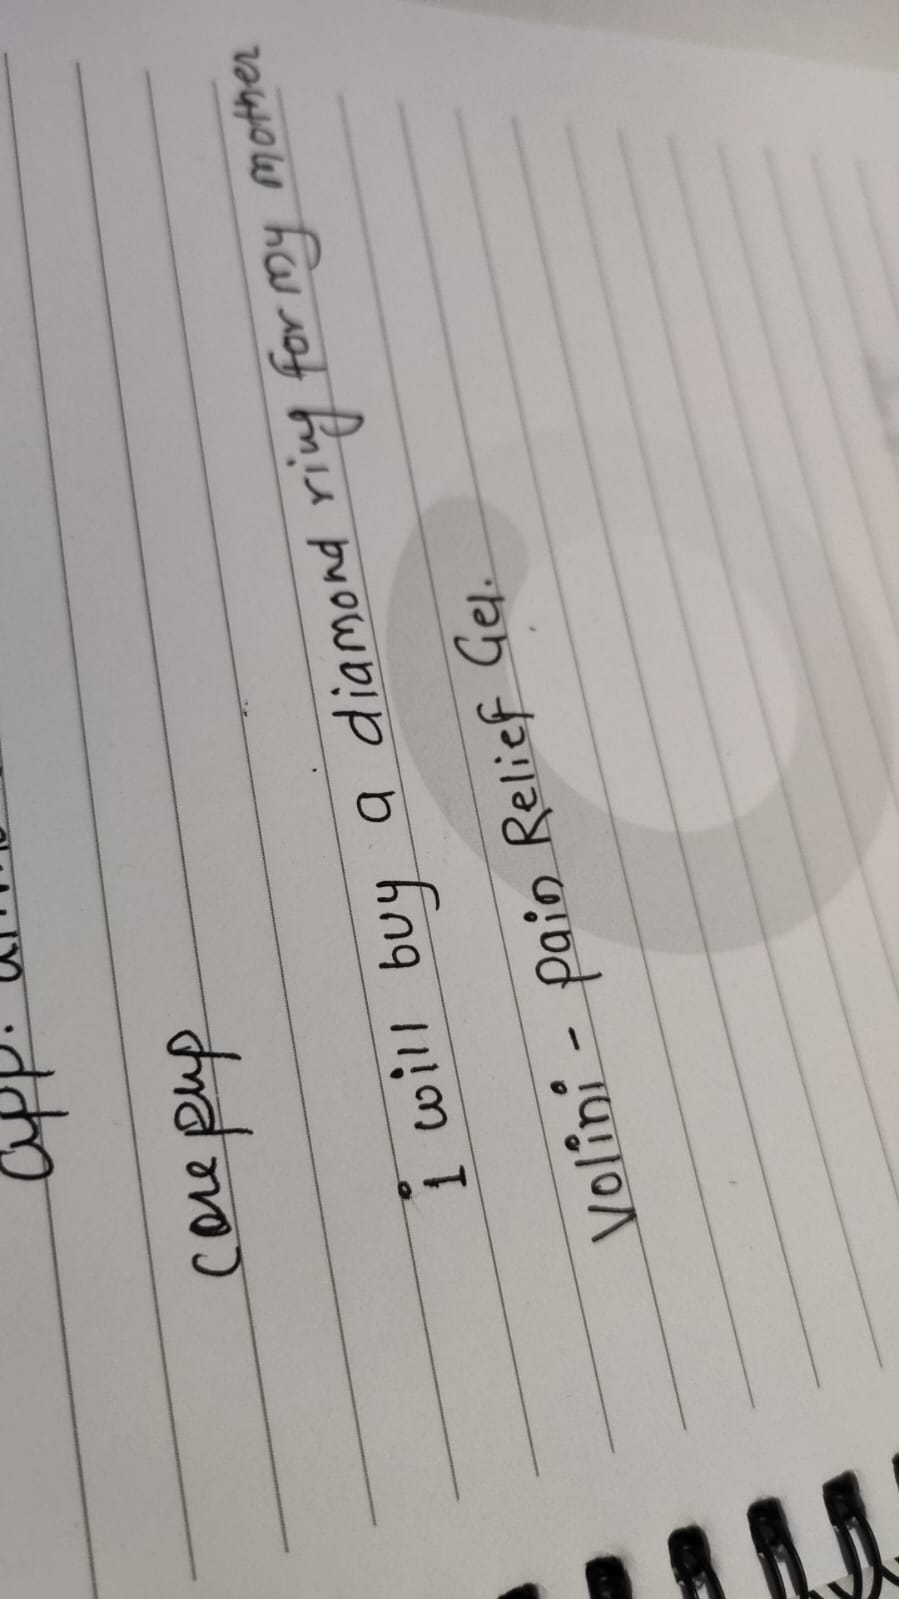 app.
i will buy a diamond ring for my mother
Volini - pain Relief Gel.